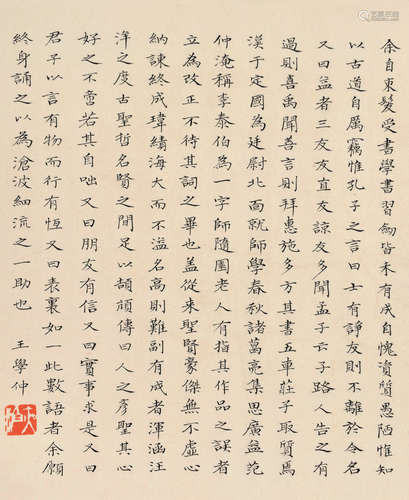 余自束髮受書學書習劒皆未有成自愧資質愚陋惟知
以古道自厲竊惟孔子之言曰士有諍友則不離於令名
又曰益者三友友直友諒友多聞孟子云子路人告之有
過則喜禹聞善言則拜惠施多方其書五車莊子取質焉
漢于定國為廷尉北面就師學春秋諸葛亮集思廣益范
仲淹稱李泰伯為一字師隨園老人有指其作品之誤者
立為改正不待其詞之畢也盖從來聖賢豪傑無不虛心
納諫終成瑋績海大而不溢名高則難副有成者渾涵汪
洋之度古聖哲名賢之間足以頡頏傳曰人之彥聖其心
好之不啻若其自咄又曰朋友有信又曰實事求是又曰
君子以言有物而行有恆又曰表裏如一此數語者余願
終身誦之以為滄波細流之一助也 王學仲